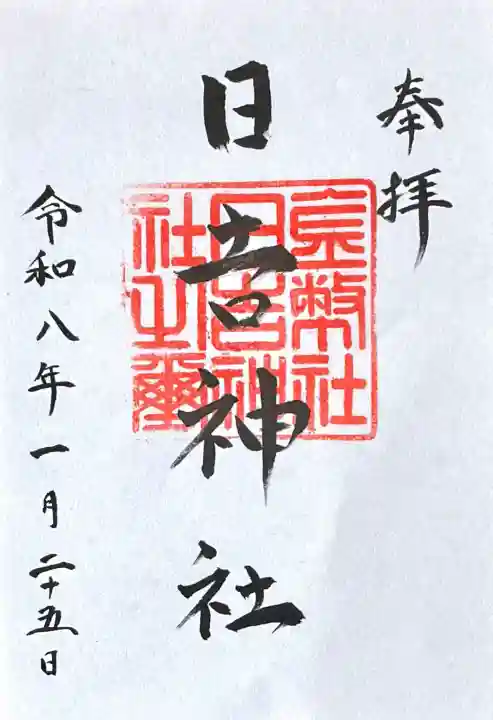 奉拝
日吉神社
県幣社
日吉神
社之璽
令和八年一月二十五日